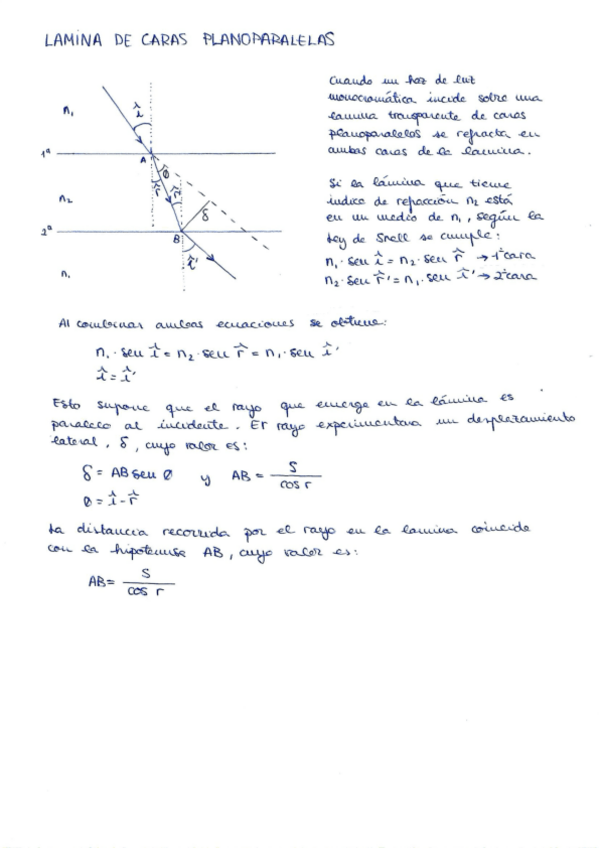 LAMINA DE CARAS PLANOPARALELAS
Cuando un haz de luz
monocromática incide sobre una
lamina transparente de caras
planoparalelas se refracta en
ambas caras de la lamina.
n₁
î
1ª
A
Ø
r̂
r̂'
n₂
δ
2ª
B
î'
n₁
Si la lámina que tiene
indice de refracción n₂ está
en un medio de n₁, según la
Ley de Snell se cumple:
n₁· sen î = n₂· sen r̂ → 1ª cara
n₂· sen r̂' = n₁· sen î' → 2ª cara
Al combinar ambas ecuaciones se obtiene:
n₁· sen î = n₂· sen r̂ = n₁· sen î'
î = î'
Esto supone que el rayo que emerge en la lámina es
paralelo al incidente. El rayo experimentara un desplazamiento
lateral, δ, cuyo valor es:
δ = AB sen Ø y AB = S / cos r
Ø = î - r̂
La distancia recorrida por el rayo en la lamina coincide
con la hipotenusa AB, cuyo valor es:
AB = S / cos r